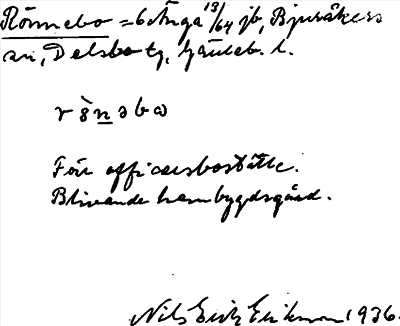 Rönnebo = 6 Änga 13/64 jb, Bjuråkers
sn, Delsbo tg, Gävleb. l.
För officersboställe.
Blivande hembygdsgård.
Nils Erik Erikson 1936.